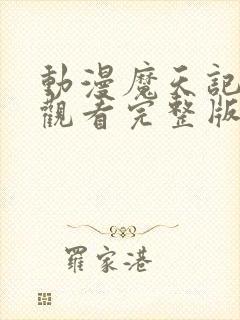 動漫魔天記
觀看完整版
羅家港